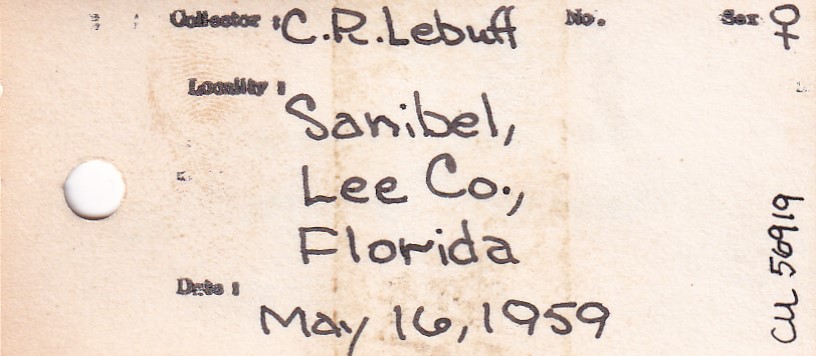 Collector : C.R. Lebuff No. Sex ♀
Locality :
Sanibel,
Lee Co.,
Florida
Date :
May 16, 1959
CU 56919